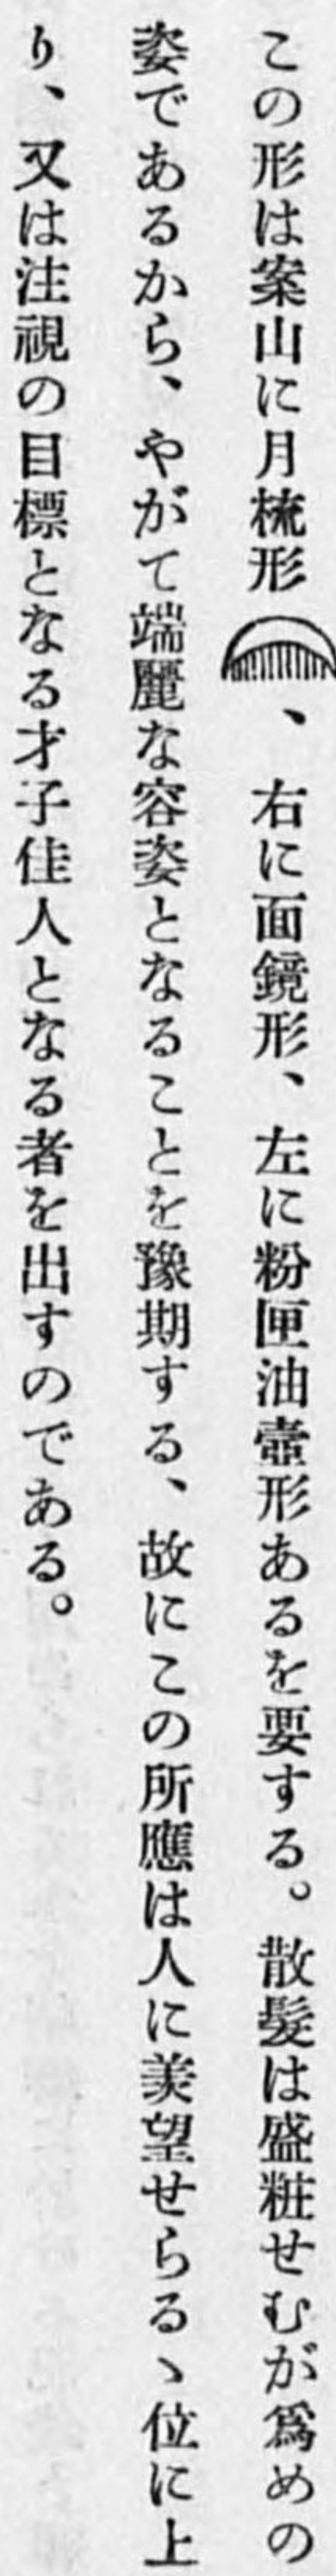 この形は案山に月梳形、右に面鏡形、左に粉匣油壺形あるを要する。散髮は盛粧せむが爲めの
姿であるから、やがて端麗な容姿となることを豫期する、故にこの所應は人に羨望せらるゝ位に上
り、又は注視の目標となる才子佳人となる者を出すのである。